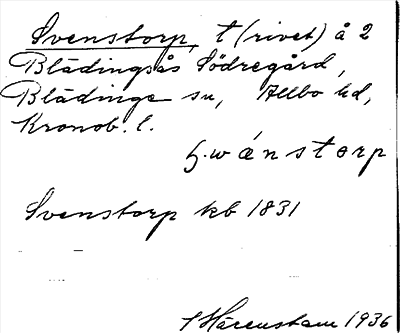 Svenstorp, t (rivet) å 2
Blädingsås Södregård,
Blädinge sn, Allbo hd,
Kronob. l.
wánstorp
Svenstorp kb 1831
Härenstam 1936